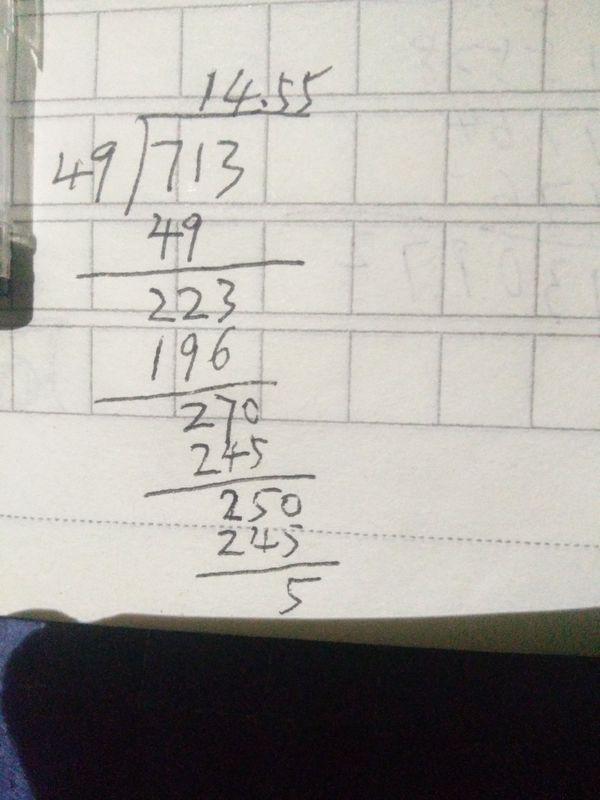 14.55
49 713
49
223
196
270
245
250
245
5